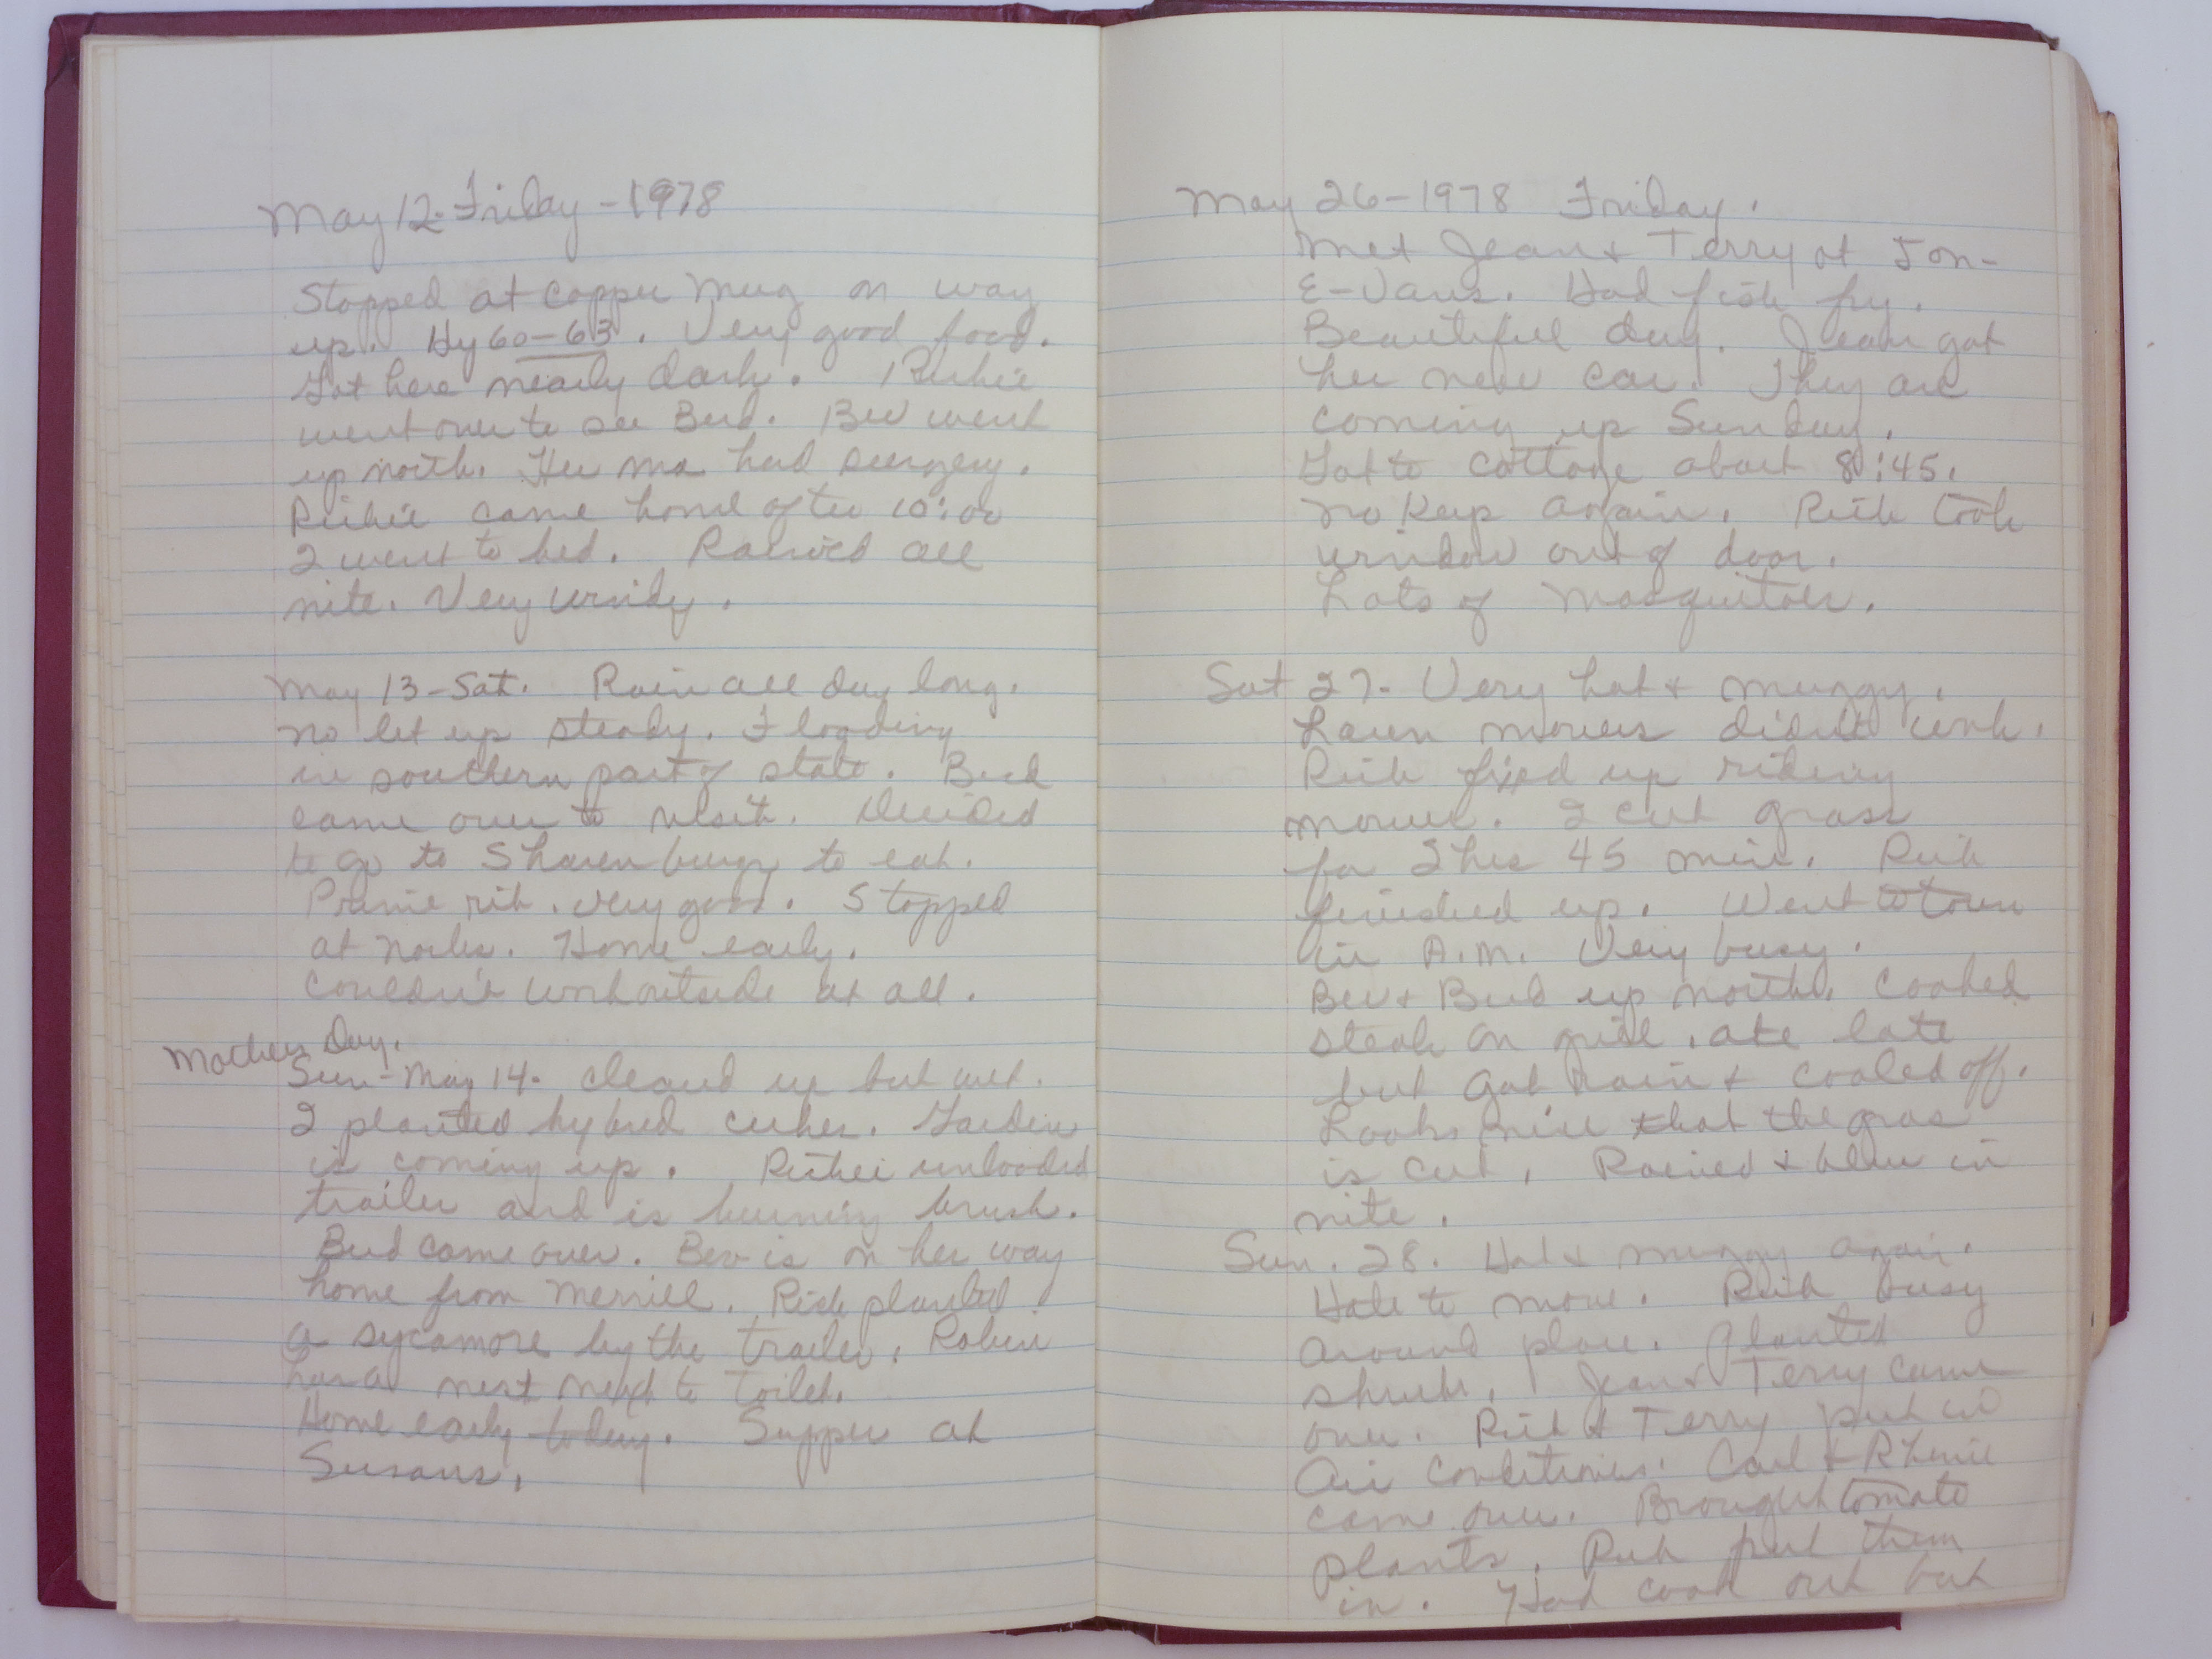 May 12-Friday-1978
Stopped at Copper Mug on way
up. Hy 60-63. Very good food.
Got here nearly dark. Richie
went over to see Bud. Bev went
up north. Her ma had surgery.
Richie came home after 10:00
I went to bed. Rained all
nite. Very windy.
May 13-Sat. Rain all day long.
no let up steady. Flooding
in southern part of state. Bud
came over to visit. Decided
to go to to eat.
Prime rib. very good. Stopped
at Home early.
Couldn't work outside at all.
Mothers Day.
Sun-May 14- cleared up but wet.
I planted hybred cukes. Garden
is coming up. Richie unloaded
trailer and is burning brush.
Bud came over. Bev is on her way
home from Merrill. Rich planted
a sycamore by the trailer. Robin
has a nest next to toilet.
Home early today. Supper at
Susans.
May 26-1978 Friday.
Met Jean & Terry at Jon-
E-Vans. Had fish fry.
Beautiful day. Jean got
her new car. They are
coming up Sunday.
Got to cottage about 8:45.
no key again. Rich took
window out of door.
Lots of Mosquitoes.
Sat 27- Very hot & muggy.
Lawn mowers didn't work.
Rich fixed up riding
mower. I cut grass
for 2 hrs 45 min. Rich
finished up. Went to town
in A.M. Very busy.
Bev & Bud up north. Cooked
steak on grill. ate late
but got rain & cooled off.
Looks nice that the gras
is cut. Rained & blew in
nite.
Sun. 28. Hot & muggy again.
Hate to move. Rich busy
around place. Planted
shrubs. Jean & Terry came
over. Rich & Terry put in
Air Conditioner. Carl &
came over. Brought tomato
plants. Rich put them
in. Had cook out but